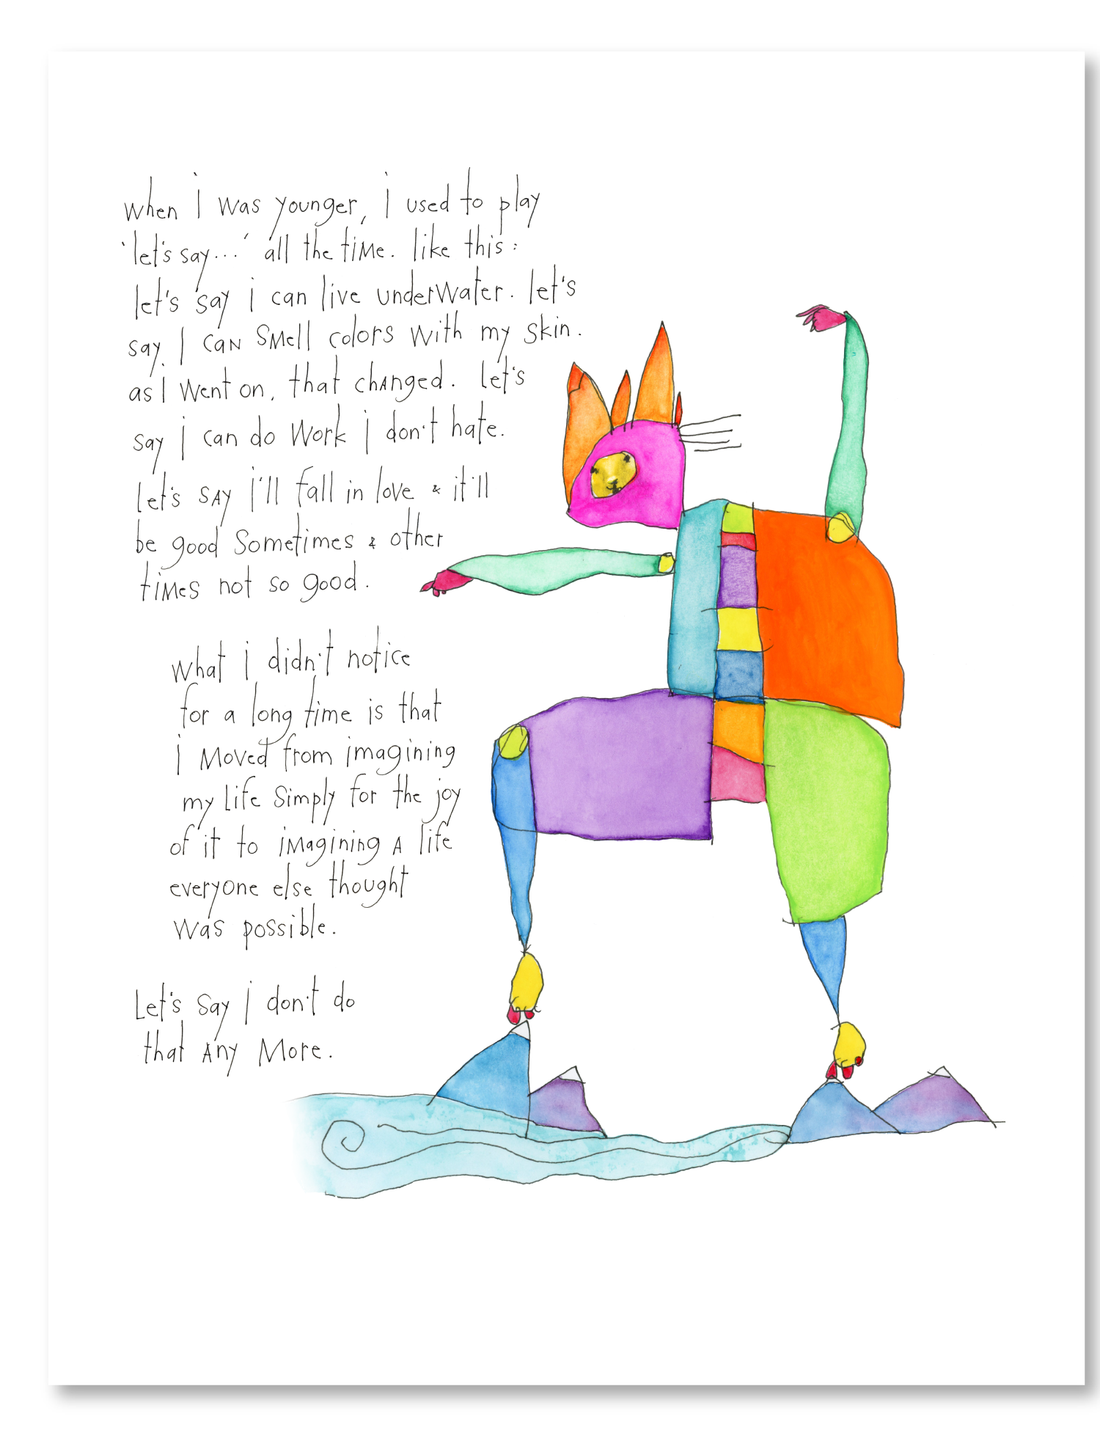 when i was younger, i used to play
'let's say...' all the time. like this:
let's say i can live underwater. let's
say i can smell colors with my skin.
as i went on, that changed. let's
say i can do work i don't hate.
let's say i'll fall in love & it'll
be good sometimes & other
times not so good.
what i didn't notice
for a long time is that
i moved from imagining
my life simply for the joy
of it to imagining a life
everyone else thought
was possible.
Let's say i don't do
that any more.